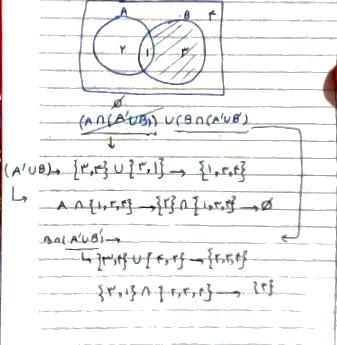 A B ۴
۲ ۱ ۳
∅
(A∩(A'∪B)) ∪ (B∩(A'∪B'))
(A'∪B) → {۳,۴} ∪ {۳,۱} → {۱,۳,۴}
A ∩ {۱,۳,۴} → {۲} ∩ {۱,۳,۴} → ∅
B∩(A'∪B') →
{۳,۴} ∪ {۲,۴} → {۲,۳,۴}
{۳,۱} ∩ {۲,۳,۴} → {۳}